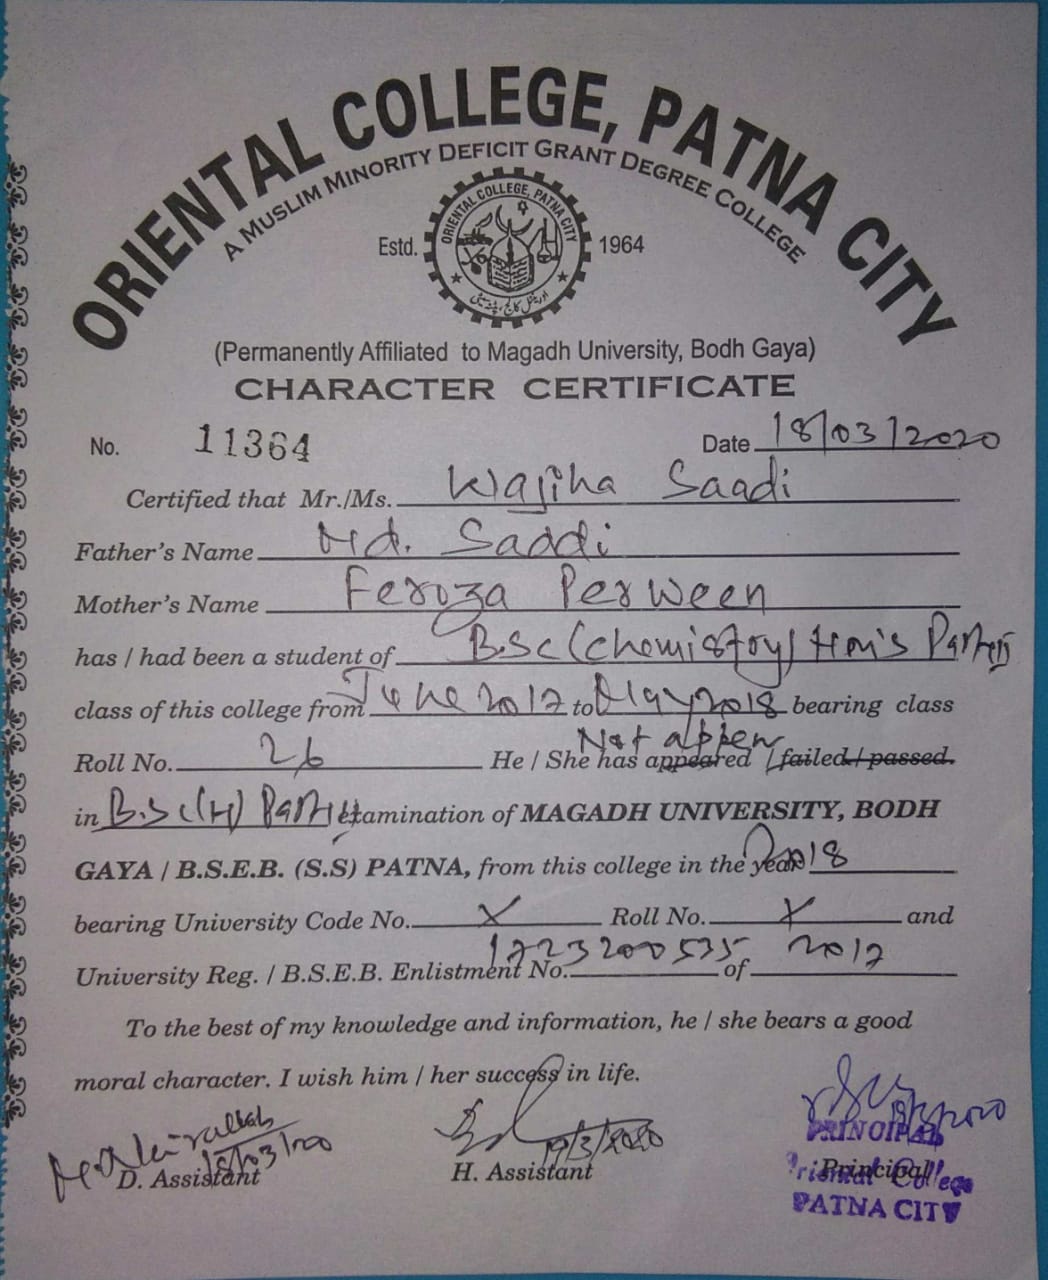 ORIENTAL COLLEGE, PATNA CITY
A MUSLIM MINORITY DEFICIT GRANT DEGREE COLLEGE
Estd. 1964
ORIENTAL COLLEGE, PATNA CITY
اورینٹل کالج، پٹنہ سیٹی
(Permanently Affiliated to Magadh University, Bodh Gaya)
CHARACTER CERTIFICATE
No. 11364 Date 18/03/2020
Certified that Mr./Ms. Wajiha Saadi
Father's Name Md. Saddi
Mother's Name Feroza Perween
has / had been a student of B.Sc (Chemistry) Hon's Part II
class of this college from June 2017 to May 2018 bearing class
Not appear
Roll No. 26 He / She has appeared / failed / passed.
in B.Sc (H) Part examination of MAGADH UNIVERSITY, BODH
GAYA / B.S.E.B. (S.S) PATNA, from this college in the year 2018
bearing University Code No. X Roll No. X and
University Reg. / B.S.E.B. Enlistment No. 1723200535 of 2017
To the best of my knowledge and information, he / she bears a good
moral character. I wish him / her success in life.
18/03/20 19/3/2020
D. Assistant H. Assistant Principal
PRINCIPAL
Oriental College
PATNA CITY